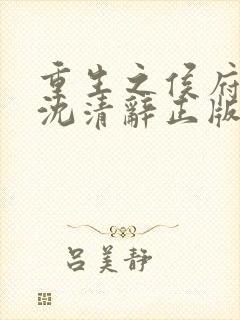 重生之侯府
沈清辞正版
吕美静